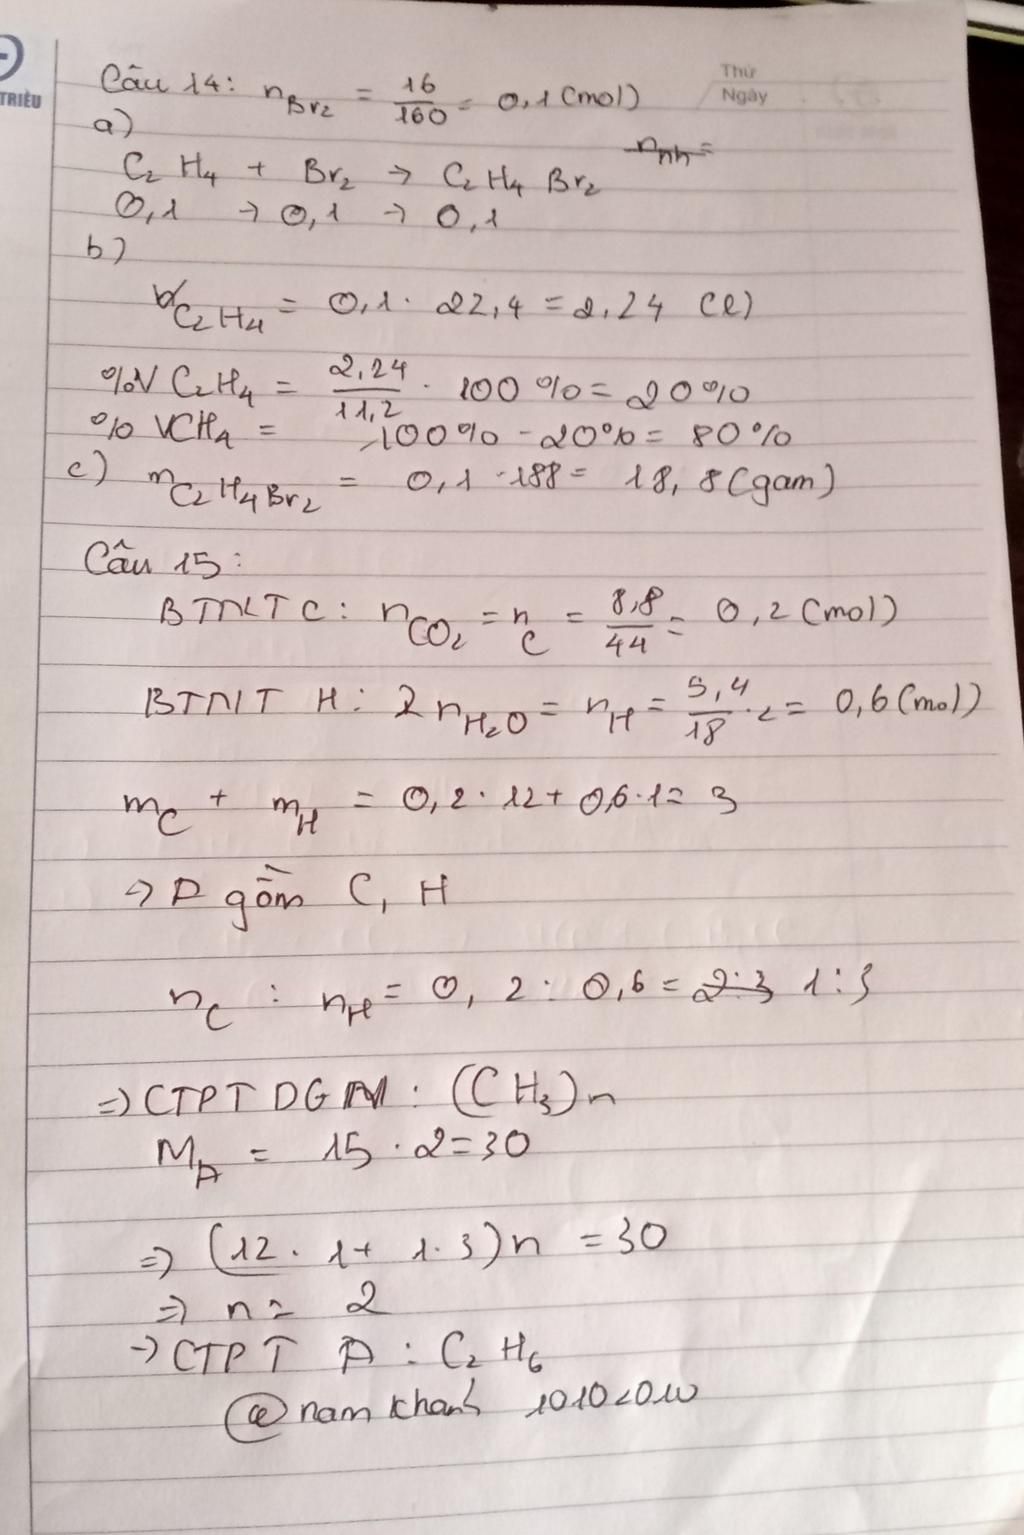 TRIỀU
Thứ
Ngày
Câu 14: nBr2 = 16/160 = 0,1 (mol)
a)
nhh =
C2H4 + Br2 → C2H4Br2
0,1 → 0,1 → 0,1
b)
VC2H4 = 0,1 . 22,4 = 2,24 (l)
%V C2H4 = 2,24/11,2 . 100% = 20%
% VCH4 = 100% - 20% = 80%
c) mC2H4Br2 = 0,1 . 188 = 18,8 (gam)
Câu 15:
BTNT C: nCO2 = nC = 8,8/44 = 0,2 (mol)
BTNT H: 2nH2O = nH = 5,4/18 . 2 = 0,6 (mol)
mC + mH = 0,2 . 12 + 0,6 . 1 = 3
→ A gồm C, H
nC : nH = 0,2 : 0,6 = 2:3 1:3
⇒ CTPT DGN : (CH3)n
MA = 15 . 2 = 30
⇒ (12 . 1 + 1 . 3)n = 30
⇒ n = 2
→ CTPT A : C2H6
@nam khanh 10102010